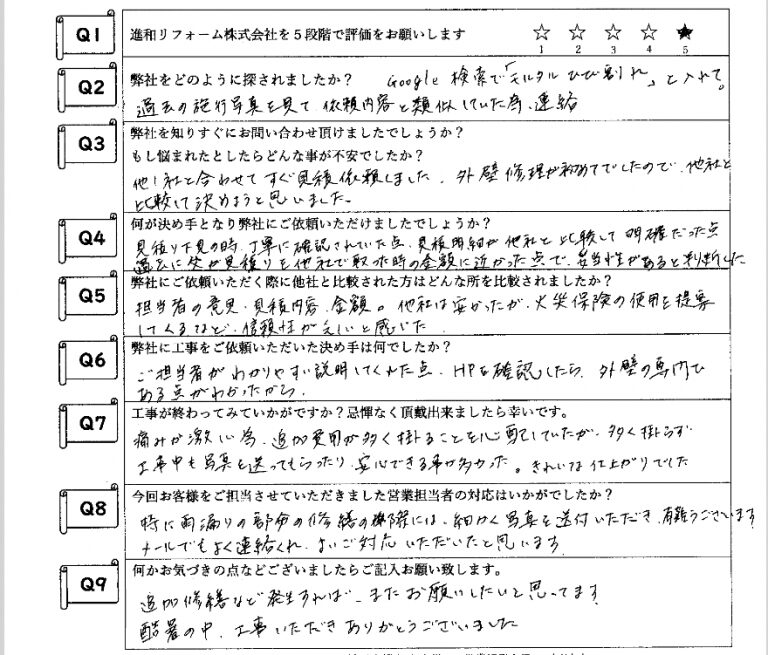 Q1
進和リフォーム株式会社を5段階で評価をお願いします
☆ ☆ ☆ ☆ ★
1 2 3 4 5
Q2
弊社をどのように探されましたか？ Google検索で「モルタルひび割れ」と入れて。
過去の施行写真を見て、依頼内容と類似していた為、連絡
Q3
弊社を知りすぐにお問い合わせ頂けましたでしょうか？
もし悩まれたとしたらどんな事が不安でしたか？
他1社と合わせてすぐ見積依頼しました。外壁修理が初めてでしたので、他社と
比較して決めようと思いました。
Q4
何が決め手となり弊社にご依頼いただけましたでしょうか？
見積り下見の時、丁寧に確認されていた点、見積明細が他社と比較して明確だった点
過去に父が見積りを他社で取った時の金額に近かった点で、妥当性があると判断した
Q5
弊社にご依頼いただく際に他社と比較された方はどんな所を比較されましたか？
担当者の意見・見積内容・金額。他社は安かったが、火災保険の使用を提案
してくるなど、信頼性がないと感じた
Q6
弊社に工事をご依頼いただいた決め手は何でしたか？
ご担当者がわかりやすい説明してくれた点、HPを確認したら、外壁の専門で
ある点がわかったから。
Q7
工事が終わってみていかがですか？忌憚なく頂戴出来ましたら幸いです。
痛みが激しい為、追加費用が多く掛ることを心配していたが、多く掛らず
工事中も写真を送ってもらったり、安心できる事が多かった。きれいな仕上がりでした
Q8
今回お客様をご担当させていただきました営業担当者の対応はいかがでしたか？
特に雨漏りの部分の修繕の際には、細かく写真を送付いただき、有難うございます
メールでもよく連絡くれ、よいご対応いただいたと思います
Q9
何かお気づきの点などございましたらご記入お願い致します。
追加修繕など発生すれば、またお願いしたいと思ってます
酷暑の中、工事いただきありがとうございました